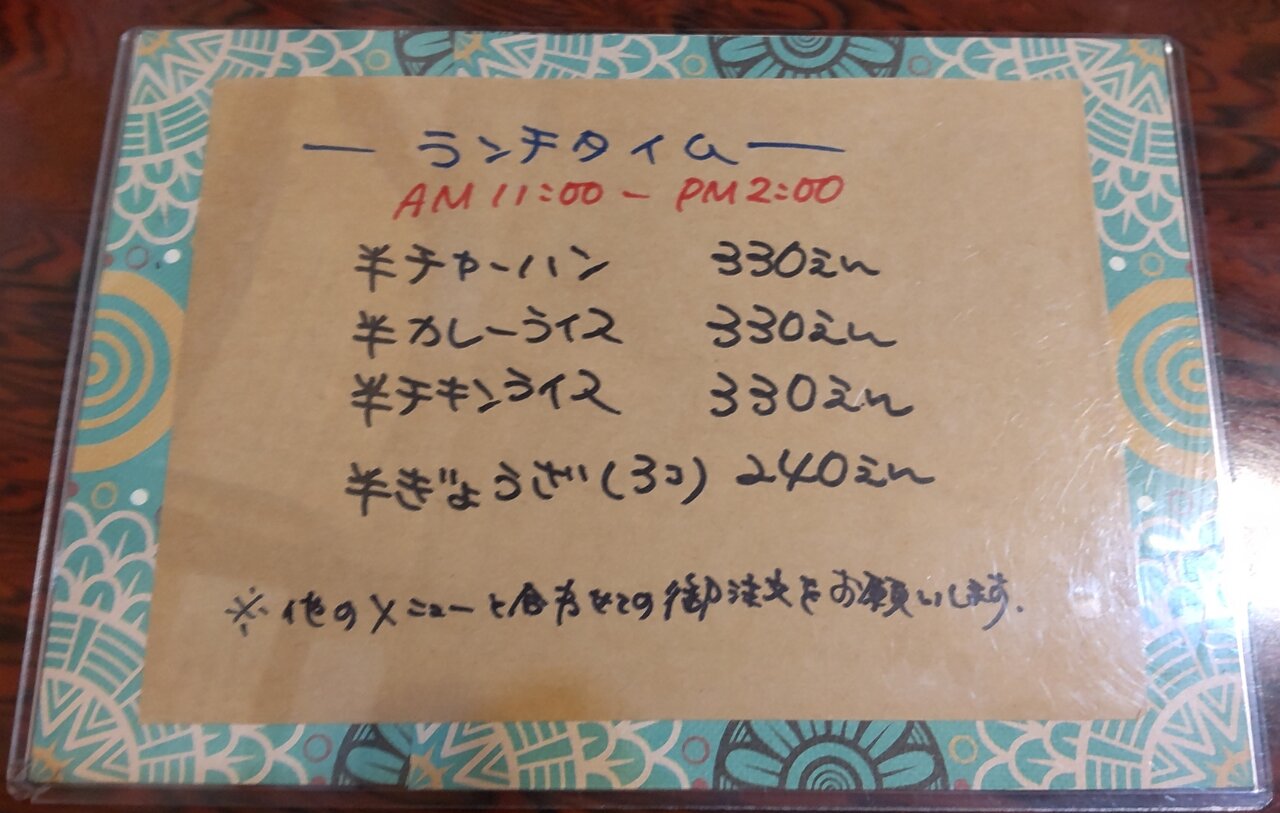 ― ランチタイム ―
AM 11:00 - PM 2:00
半チャーハン 330えん
半カレーライス 330えん
半チキンライス 330えん
半ぎょうざ(3コ) 240えん
※他のメニューと合わせての御注文をお願いします.